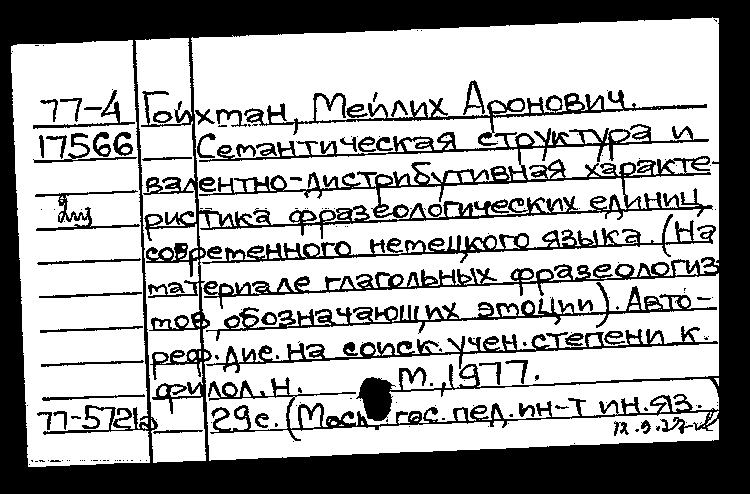 77-4 Гойхман, Мейлих Аронович.
17566 Семантическая структура и
валентно-дистрибутивная характе-
ристика фразеологических единиц
современного немецкого языка. (На
материале глагольных фразеологиз-
мов, обозначающих эмоции). Авто-
реф. дис. на соиск. учен. степени к.
филол. н. М., 1977.
77-5721а 29 с. (Моск. гос. пед. ин-т ин. яз.)